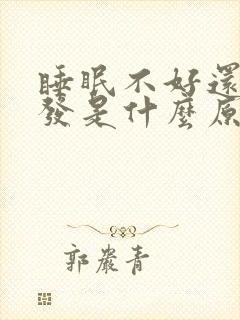 睡眠不好還
發是什麼原
郭嚴青